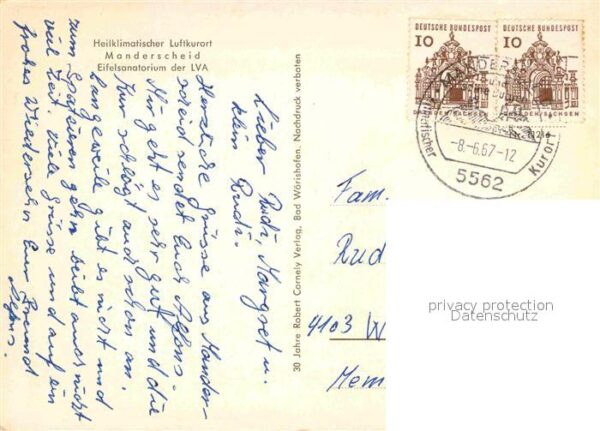 Heilklimatischer Luftkurort
Manderscheid
Eifelsanatorium der LVA
Lieber Rudi, Margret u.
klein Rudi.
Herzliche Grüsse aus Mander-
scheid sendet Euch Alfons.
Mir geht es sehr gut und die
Kur schlägt auch schon an.
Langeweile gibt es nicht und
zum Spazieren gehn bleibt auch nicht
viel Zeit. Viele Grüsse und auf ein
frohes Wiedersehn Euer Freund
Alfons.
30 Jahre Robert Cornely Verlag, Bad Wörishofen. Nachdruck verboten
DEUTSCHE BUNDESPOST
10
DEUTSCHE BUNDESPOST
10
DRESDEN/SACHSEN
MANDER
-8.-6.67-12
5562
Kurort
Fam.
Rud
4103 W
Mem
privacy protection
Datenschutz